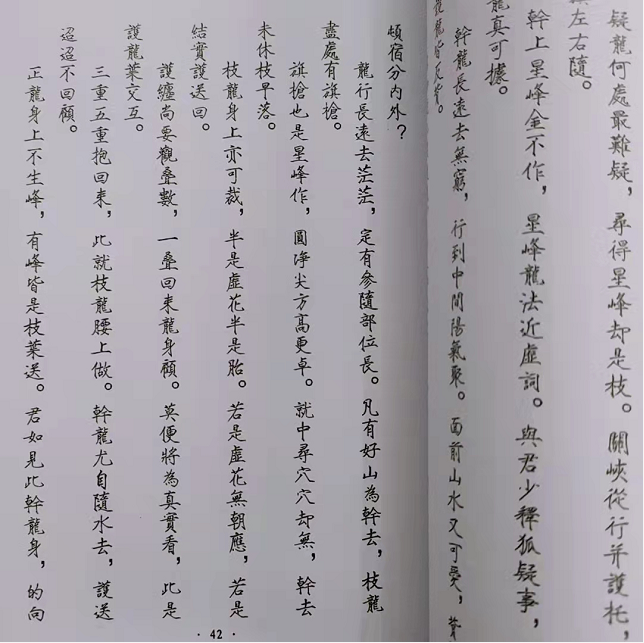 疑龍何處最難疑，尋得星峰却是枝。關峽從行并護托，
左右隨。
幹上星峰金不作，星峰龍法近虛詞。與君少釋狐疑事，
龍真可據。
幹龍長遠去無窮，行到中間陽氣聚。面前山水又可愛，
龍皆反背。
頓宿分內外？
龍行長遠去茫茫，定有參隨部位長。凡有好山為幹去，枝龍
盡處有旗搶。
旗搶也是星峰作，圓淨尖方高更卓。就中尋穴穴却無，幹去
未休枝早落。
枝龍身上亦可裁，半是虛花半是胎。若是虛花無朝應，若是
結實護送回。
護纏尚要觀疊數，一疊回來龍身顧。莫便將為真實看，此是
護龍葉交互。
三重五重抱回來，此就枝龍腰上做。幹龍尤自隨水去，護送
迢迢不回顧。
正龍身上不生峰，有峰皆是枝葉送。君如見此幹龍身，的向
· 42 ·